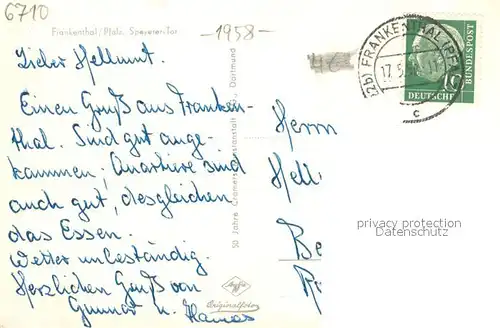 6710
-1958-
Frankenthal/Pfalz. Speyerer-Tor
Lieber Hellmut.
Einen Gruß aus Franken-
thal. Sind gut ange-
kommen; Quartiere sind
auch gut, desgleichen
das Essen.
Wetter unbeständig.
Herzlichen Gruß von
Gunnar u. Hannes
50 Jahre Cramers Kunstanstalt Dortmund
Agfa
Originalfoto
(22b) FRANKENTHAL (PFALZ)
17.5.
c
10
DEUTSCHE
BUNDESPOST
Herrn
Hell
Be
privacy protection
Datenschutz